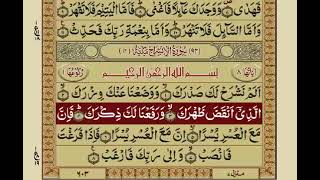 فَهَدٰى ۝ وَوَجَدَكَ عَآئِلًا فَاَغْنٰى ۝ فَاَمَّا الْيَتِيْمَ فَلَا تَقْهَرْ ۝
وَاَمَّا السَّآئِلَ فَلَا تَنْهَرْ ۝ وَاَمَّا بِنِعْمَةِ رَبِّكَ فَحَدِّثْ ۝
بِسْمِ اللّٰهِ الرَّحْمٰنِ الرَّحِيْمِ
اَلَمْ نَشْرَحْ لَكَ صَدْرَكَ ۝ وَوَضَعْنَا عَنْكَ وِزْرَكَ ۝
الَّذِيْٓ اَنْقَضَ ظَهْرَكَ ۝ وَرَفَعْنَا لَكَ ذِكْرَكَ ۝ فَاِنَّ
مَعَ الْعُسْرِ يُسْرًا ۝ اِنَّ مَعَ الْعُسْرِ يُسْرًا ۝ فَاِذَا فَرَغْتَ
فَانْصَبْ ۝ وَاِلٰى رَبِّكَ فَارْغَبْ ۝
٦٠٣